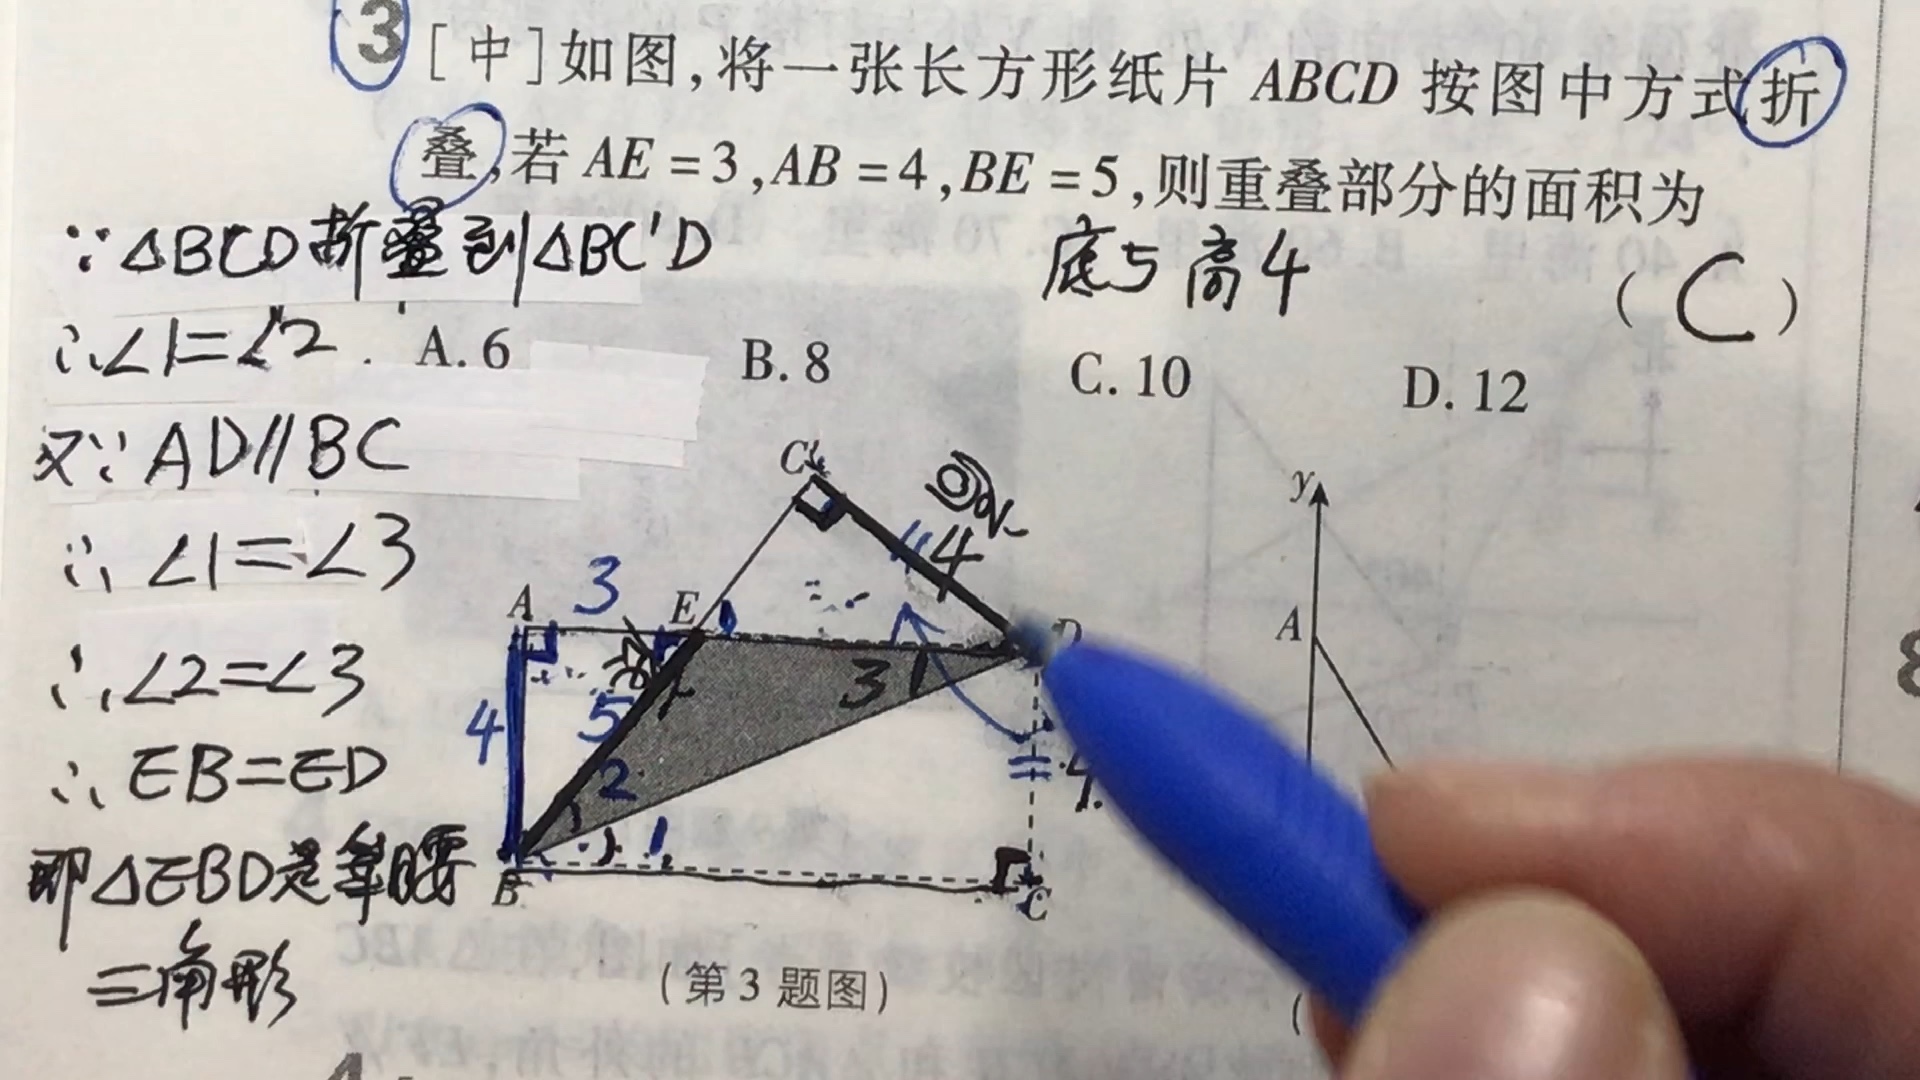 3 [中]如图,将一张长方形纸片 ABCD 按图中方式折
叠,若 AE=3,AB=4,BE=5,则重叠部分的面积为
∵△BCD折叠到△BC'D
底5 高4
(C)
∴∠1=∠2
A. 6 B. 8 C. 10 D. 12
又∵AD∥BC
∴∠1=∠3
∴∠2=∠3
∴EB=ED
即△EBD是等腰
三角形
C'
高
4
A 3 E D
4 5 3
2
1
= 4
B C
y
A
(第3题图)
(
4
8